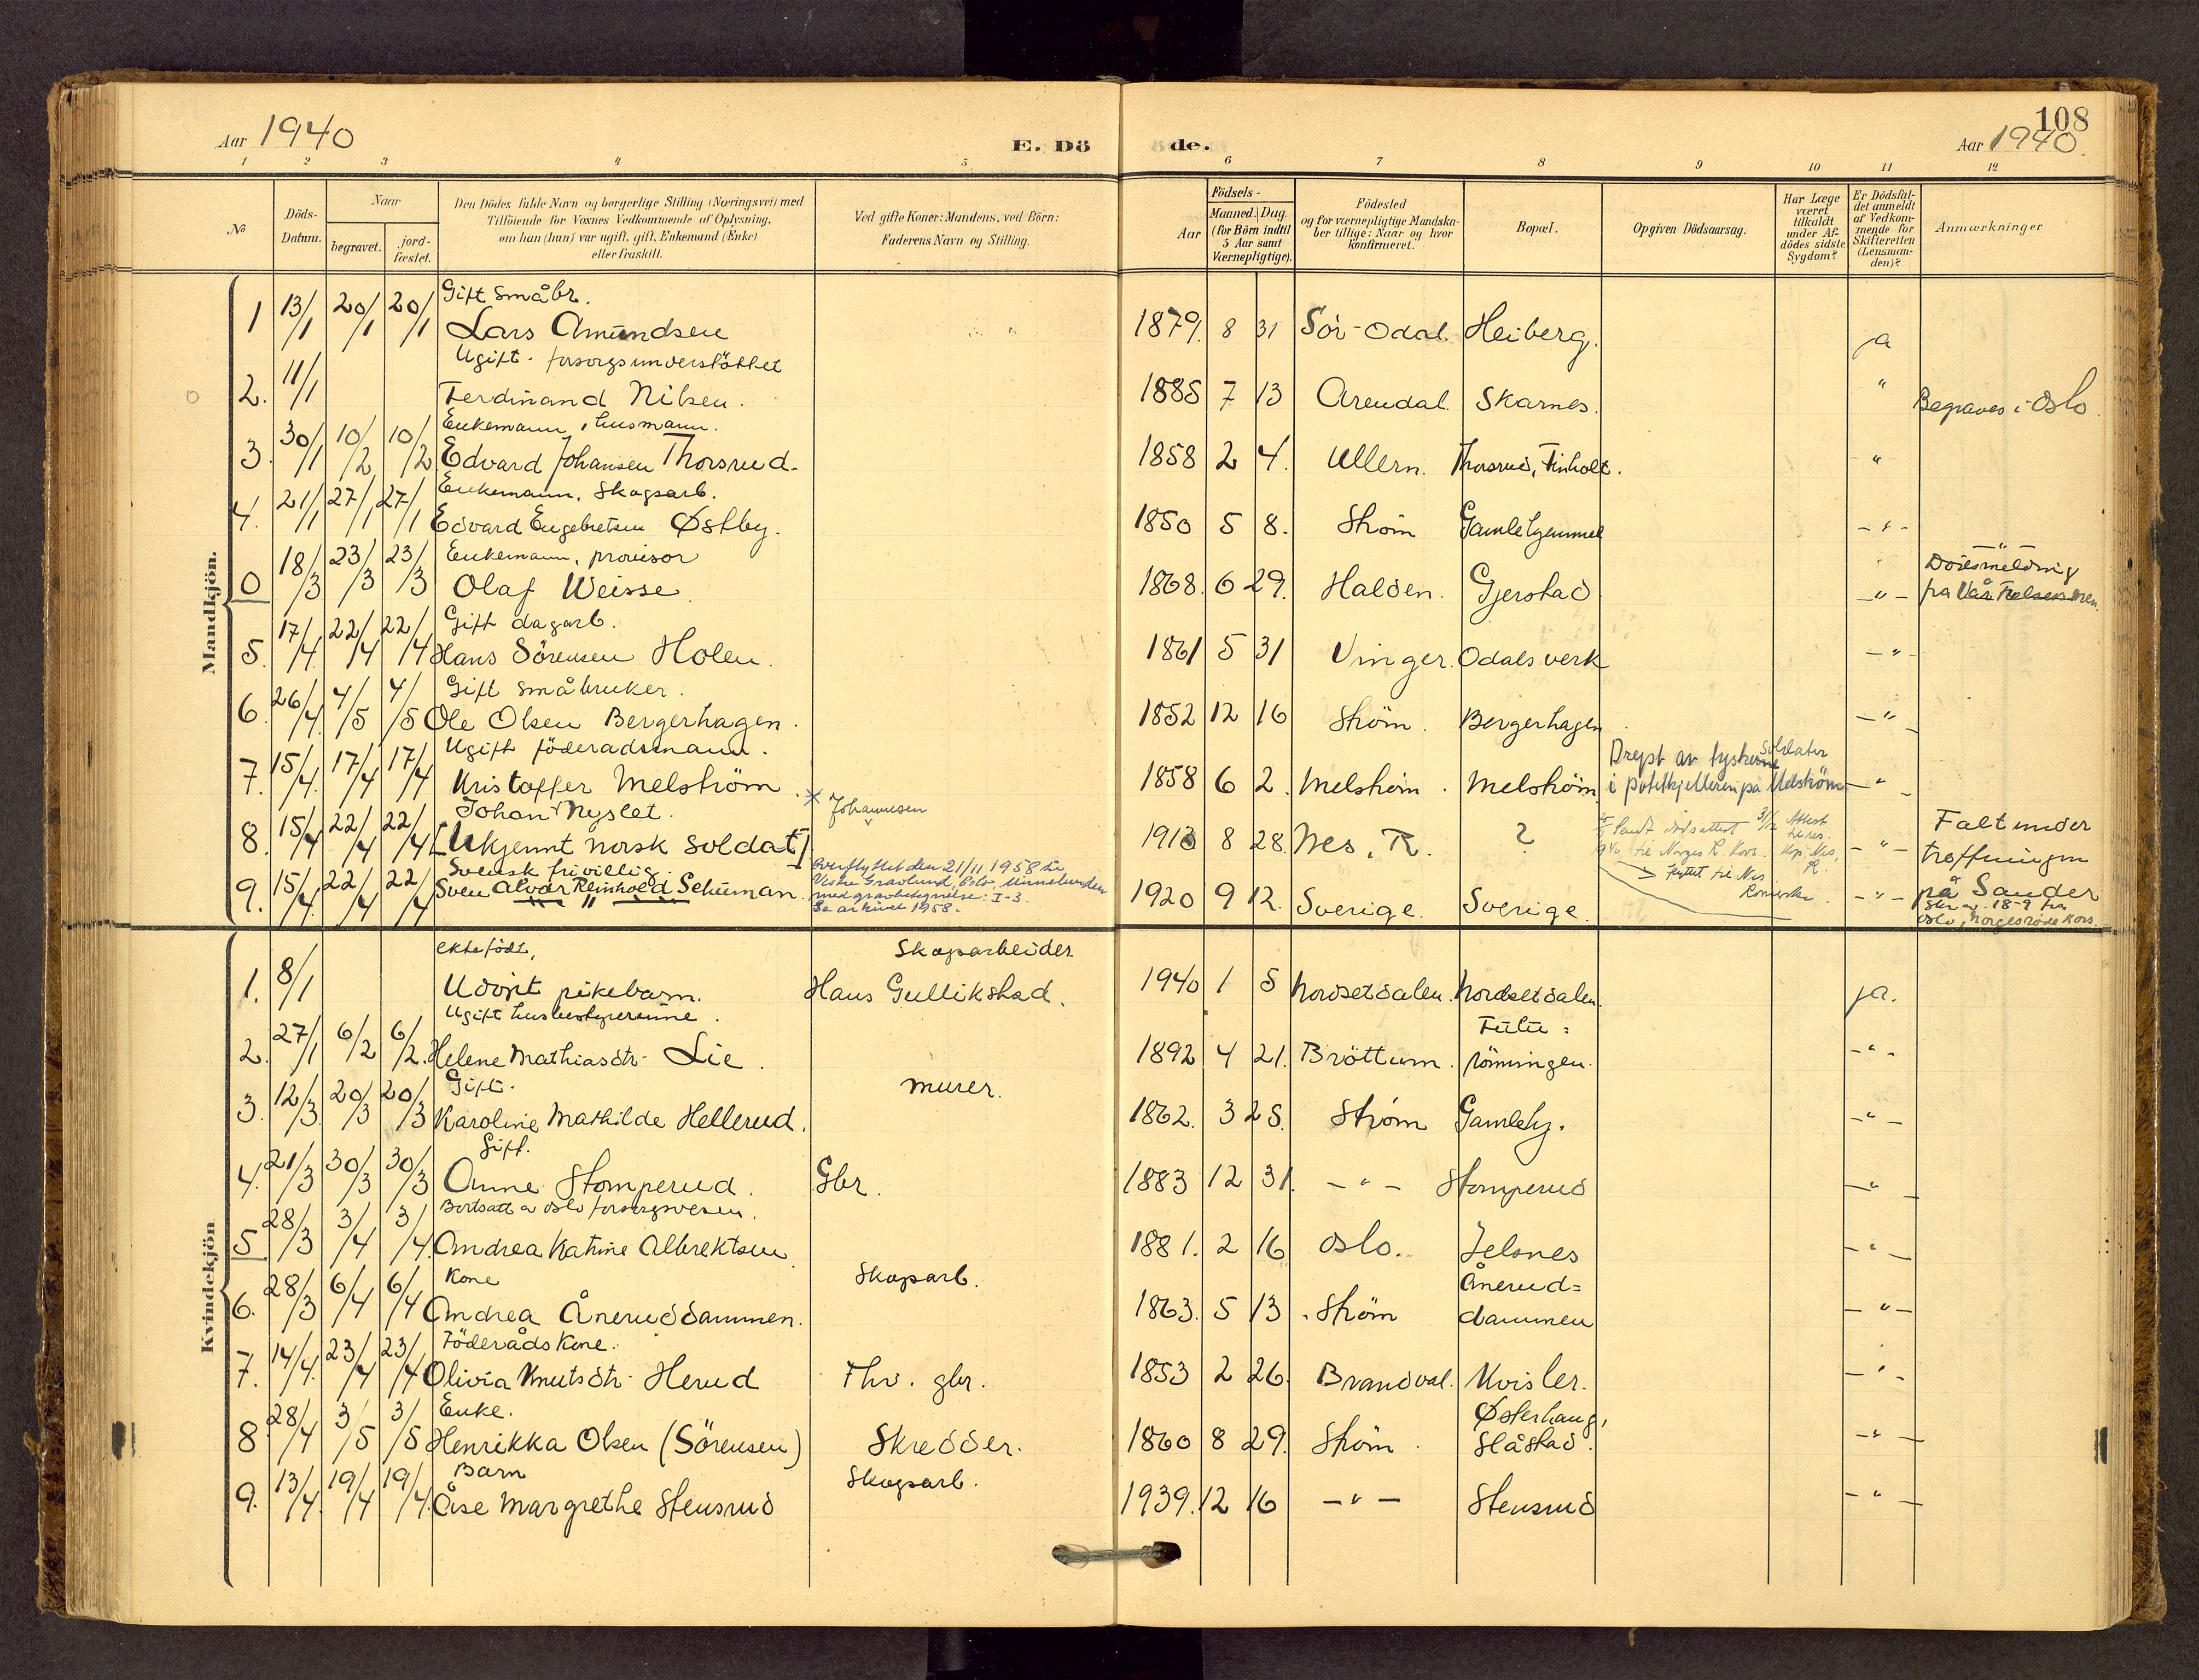 108
Aar 1940
E. Dö
de.
Aar 1940.
1 2 3 4 5 6 7 8 9 10 11 12
№
Döds-
Datum.
Naar
begravet.
jord-
fæstet.
Den Dödes fulde Navn og borgerlige Stilling (Næringsvei) med
Tilföiende for Voxnes Vedkommende af Oplysning,
om han (hun) var ugift, gift, Enkemand (Enke)
eller fraskilt.
Ved gifte Koner: Mandens, ved Börn:
Faderens Navn og Stilling.
Födsels-
Aar
Maaned. Dag.
(for Börn indtil
5 Aar samt
Værnepligtige).
Födested
og for værnepligtige Mandska-
ber tillige: Naar og hvor
konfirmeret.
Bopæl.
Opgiven Dödsaarsag.
Har Læge
været
tilkaldt
under Af-
dödes sidste
Sygdom?
Er Dödsfal-
det anmeldt
af Vedkom-
mende for
Skifteretten
(Lensman-
den)?
Anmærkninger
Mandkjön.
Gift småbr.
1 13/1 20/1 20/1 Lars Amundsen 1879. 8 31 Sör-Odal. Heiberg. ja
Ugift. forsorgsunderstöttet
2. 11/1 Ferdinand Nilsen. 1885 7 13 Arendal. Skarnes. " Begraves i Oslo.
Enkemann, husmann.
3. 30/1 10/2 10/2 Edvard Johansen Thorsrud. 1858 2 4. Ullern. Thorsrud, Finholt. "
Enkemann, Skogsarb.
4. 21/1 27/1 27/1 Edvard Engebretsen Østby. 1850 5 8. Ström Gamlehjemmet - " -
Enkemann, provisor
0 18/3 23/3 23/3 Olaf Weisse 1868. 6 29. Halden. Gjerstad - " - Dödsmelding
fra Vår Frelsers men.
Gift dagarb.
5. 17/4. 22/4 22/4 Hans Sörensen Holen. 1861 5 31 Vinger. Odals verk - " -
Gift småbruker.
6. 26/4. 4/5 4/5 Ole Olsen Bergerhagen. 1852 12 16 Ström. Bergerhagen - " -
Ugift föderadsmann.
7. 15/4. 17/4 17/4 Kristoffer Melström. 1858 6 2. Melström. Melström. Drept av tyskerne soldater
i potetkjelleren på Melström - " -
Johan Nyslet. Johannesen
8. 15/4 22/4 22/4 [Ukjennt norsk soldat] 1913 8 28. Nes, R. ? Sendt dödsattest
til Norges R. Kors. Attest
Nes, R. - " - Falt under
treffningen
Svensk frivillig.
9. 15/4. 22/4 22/4 Sven Alvar Reinhold Schuman. Overflyttet den 21/11 1958 til
Vestre Gravlund, Oslo, Minnelunden
med gravbetegnelse: I-3.
Se arkivet 1958.
1920 9 12. Sverige. Sverige. flyttet til Nes
Romerike. - " - på Sander
Skr. av 18-9 fra
Oslo, Norges röde Kors.
Kvindekjön
ektefödt, Skogarbeider.
1. 8/1 Udöpt pikebarn. Hans Gullikstad. 1940 1 5 Nordsetdalen. Nordsetdalen. ja.
Ugift husbestyrerinne. Fulu=
2. 27/1 6/2 6/2. Helene Mathiasdtr. Lie. 1892 4 21. Bröttum. römningen. - " -
Gift. murer.
3. 12/3. 20/3 20/3 Karoline Mathilde Hellerud. 1862. 3 25. Ström Gamlehj. - " -
Gift.
4. 21/3 30/3 30/3 Anne Stomperud. Gbr. 1883 12 31. - " - Stomperud - " -
Bortsatt av Oslo forsorgsvesen.
5 28/3 3/4 3/4. Andrea Katrine Albrektsen 1881. 2 16 Oslo. Jelsnes - " -
Kone Skogarb. Ånerud=
6. 28/3 6/4 6/4 Andrea Åneruddammen. 1863. 5 13 Ström dammen - " -
Föderådskone.
7. 14/4. 23/4 23/4 Olivia Knutsdtr. Herud Fhv. gbr. 1853 2 26. Brandval. Kvisler. - " -
Enke. Østerhaug,
8 28/4 3/5 3/5 Henrikka Olsen (Sörensen) Skredder. 1860 8 29. Ström. Slåstad. - " -
Barn Skogsarb.
9. 13/4. 19/4 19/4. Åse Margrethe Stensrud 1939. 12 16 - " - Stensrud - " -